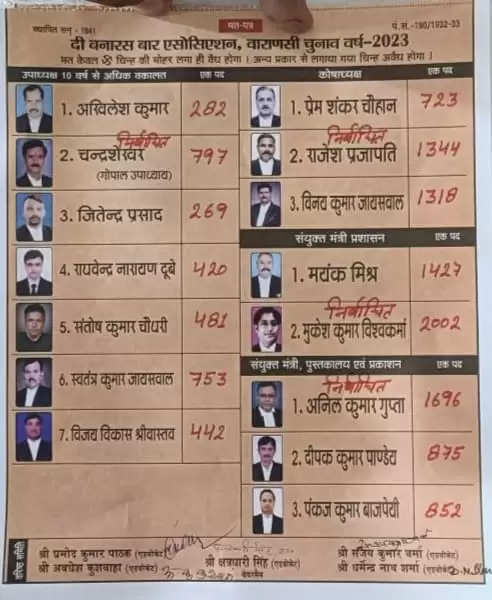 स्थापित सन् - 1941
मत-पत्र
पं.सं.-190/1932-33
दी बनारस बार एसोसिएशन, वाराणसी चुनाव वर्ष-2023
मत केवल चिन्ह की मोहर लगा ही वैध होगा। अन्य प्रकार से लगाया गया चिन्ह अवैध होगा।
उपाध्यक्ष 10 वर्ष से अधिक वकालत एक पद
1. अखिलेश कुमार 282
निर्वाचित
2. चन्द्रशेखर 797
(गोपाल उपाध्याय)
3. जितेन्द्र प्रसाद 269
4. राघवेन्द्र नारायण दूबे 420
5. संतोष कुमार चौधरी 481
6. स्वतंत्र कुमार जायसवाल 753
7. विजय विकास श्रीवास्तव 442
कोषाध्यक्ष एक पद
1. प्रेम शंकर चौहान 723
निर्वाचित
2. राजेश प्रजापति 1344
3. विनय कुमार जायसवाल 1318
संयुक्त मंत्री प्रशासन एक पद
1. मयंक मिश्र 1427
निर्वाचित
2. मुकेश कुमार विश्वकर्मा 2002
संयुक्त मंत्री, पुस्तकालय एवं प्रकाशन एक पद
निर्वाचित
1. अनिल कुमार गुप्ता 1696
2. दीपक कुमार पाण्डेय 875
3. पंकज कुमार बाजपेयी 852
श्री प्रमोद कुमार पाठक (एडवोकेट)
श्री अवधेश कुशवाहा (एडवोकेट)
श्री छत्रधारी सिंह (एडवोकेट)
चेयरमैन
श्री संजय कुमार वर्मा (एडवोकेट)
श्री धर्मेन्द्र नाथ शर्मा (एडवोकेट)